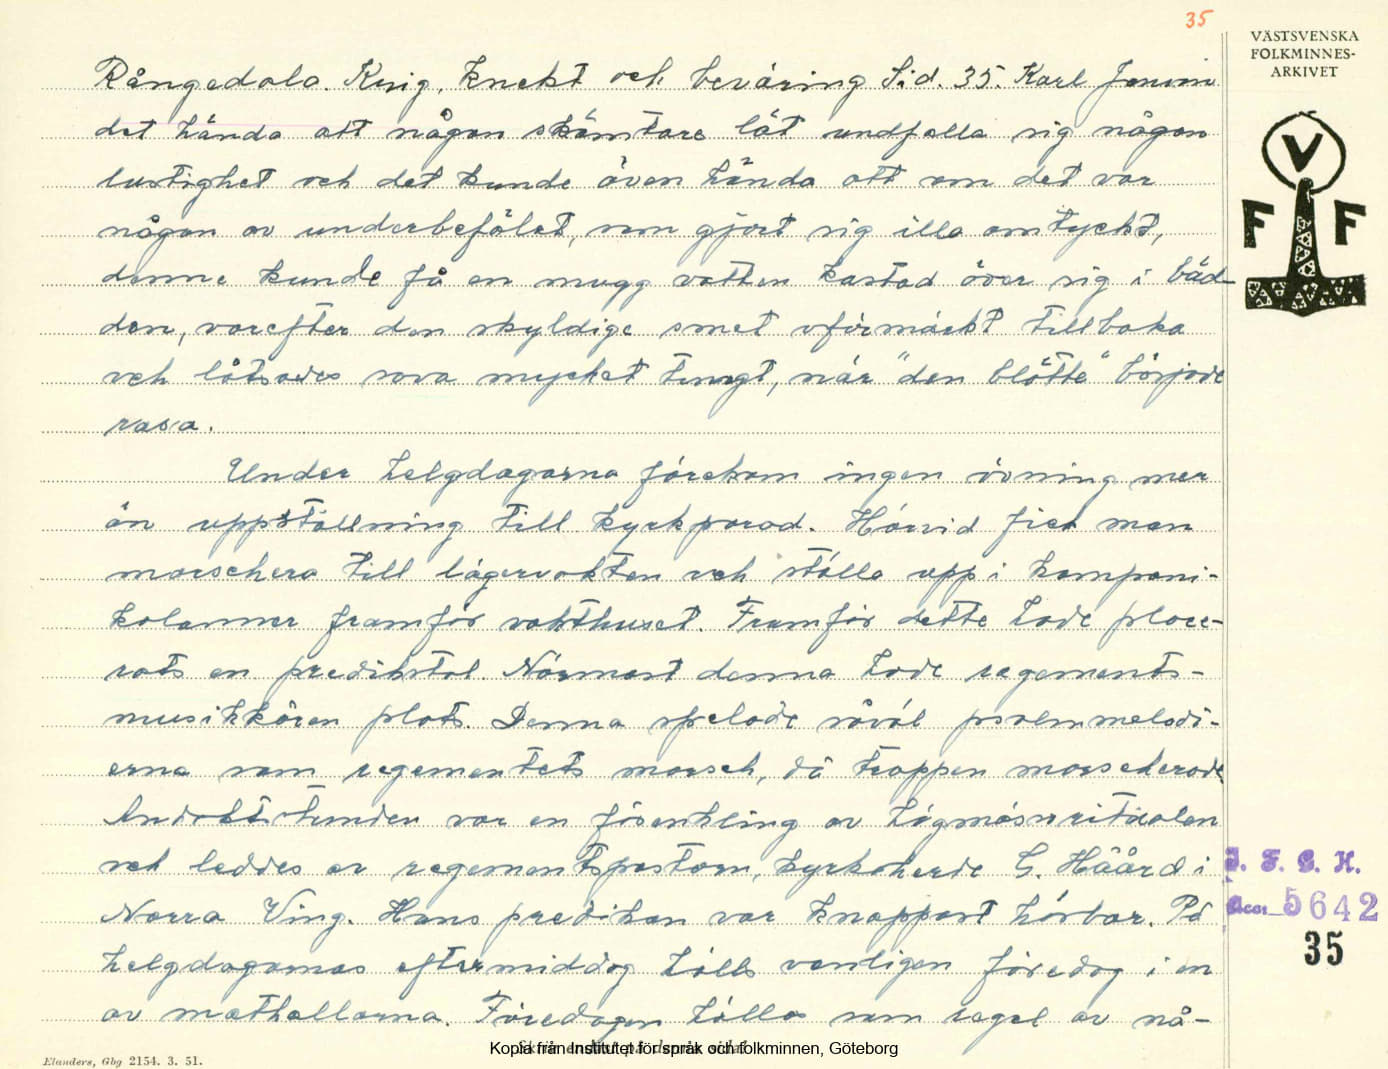 35
VÄSTSVENSKA
FOLKMINNES-
ARKIVET
V
F F
Rångedala. Krig, knekt och beväring Sid. 35. Karl Jonsson
det hände att någon skämtare lät undfalla sig någon
lustighet och det kunde även hända att om det var
någon av underbefälet, som gjort sig illa omtyckt,
denne kunde få en mugg vatten kastad över sig i bäd-
den, varefter den skyldige smet oförmärkt tillbaka
och låtsades sova mycket tungt, när "den blötte" började
rasa.
Under helgdagarna förekom ingen övning mer
än uppställning till kyrkparad. Härvid fick man
marschera till lägervakten och ställa upp i kompani-
kolonner framför vakthuset. Framför detta hade place-
rats en predikstol. Närmast denna hade regements-
musikkåren plats. Denna spelade såväl psalmmelodi-
erna som regementets marsch, då troppen marscherade.
Andaktstunden var en förenkling av högmässoritualen
och leddes av regementspastorn, kyrkoherde G. Häård i
Norra Ving. Hans predikan var knappast hörbar. På
helgdagarnas eftermiddag hölls vanligen föredag i en
av mathallarna. Föredagen höllos som regel av nå-
I. F. G. H.
Acc. 5642
35
Elanders, Gbg 2154. 3. 51.
Kopia från Institutet för språk och folkminnen, Göteborg